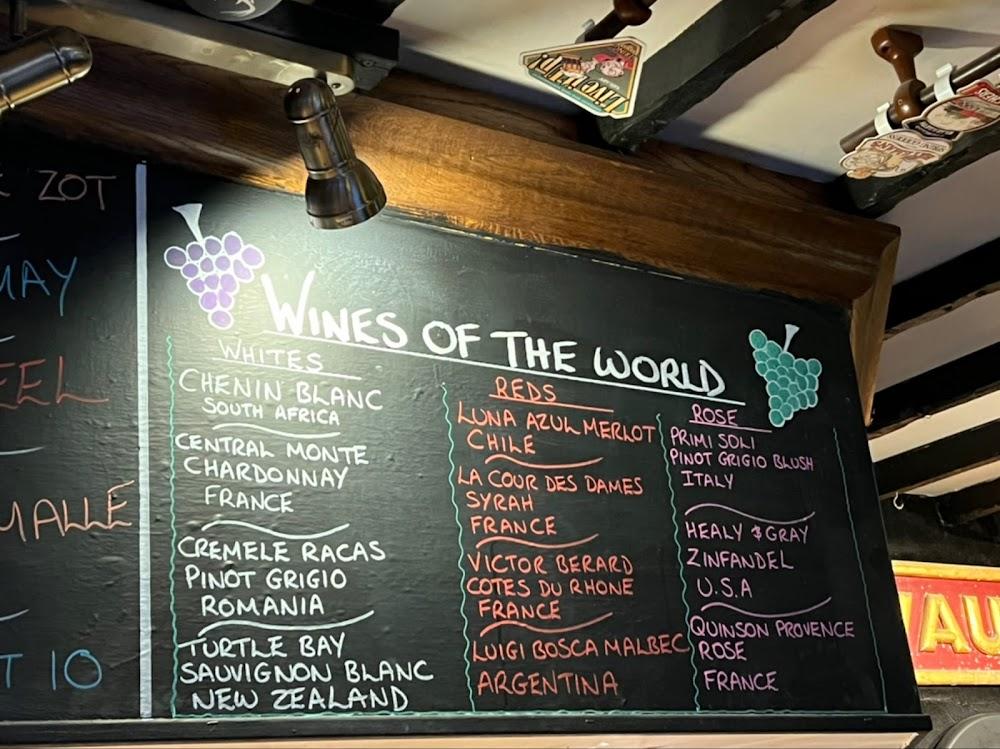 ZOT
MAY
EEL
MALLE
T 10
WINES OF THE WORLD
WHITES
CHENIN BLANC
SOUTH AFRICA
CENTRAL MONTE
CHARDONNAY
FRANCE
CREMELE RACAS
PINOT GRIGIO
ROMANIA
TURTLE BAY
SAUVIGNON BLANC
NEW ZEALAND
REDS
LUNA AZUL MERLOT
CHILE
LA COUR DES DAMES
SYRAH
FRANCE
VICTOR BERARD
COTES DU RHONE
FRANCE
LUIGI BOSCA MALBEC
ARGENTINA
ROSE
PRIMI SOLI
PINOT GRIGIO BLUSH
ITALY
HEALY & GRAY
ZINFANDEL
U.S.A
QUINSON PROVENCE
ROSE
FRANCE
Live it up!
AU